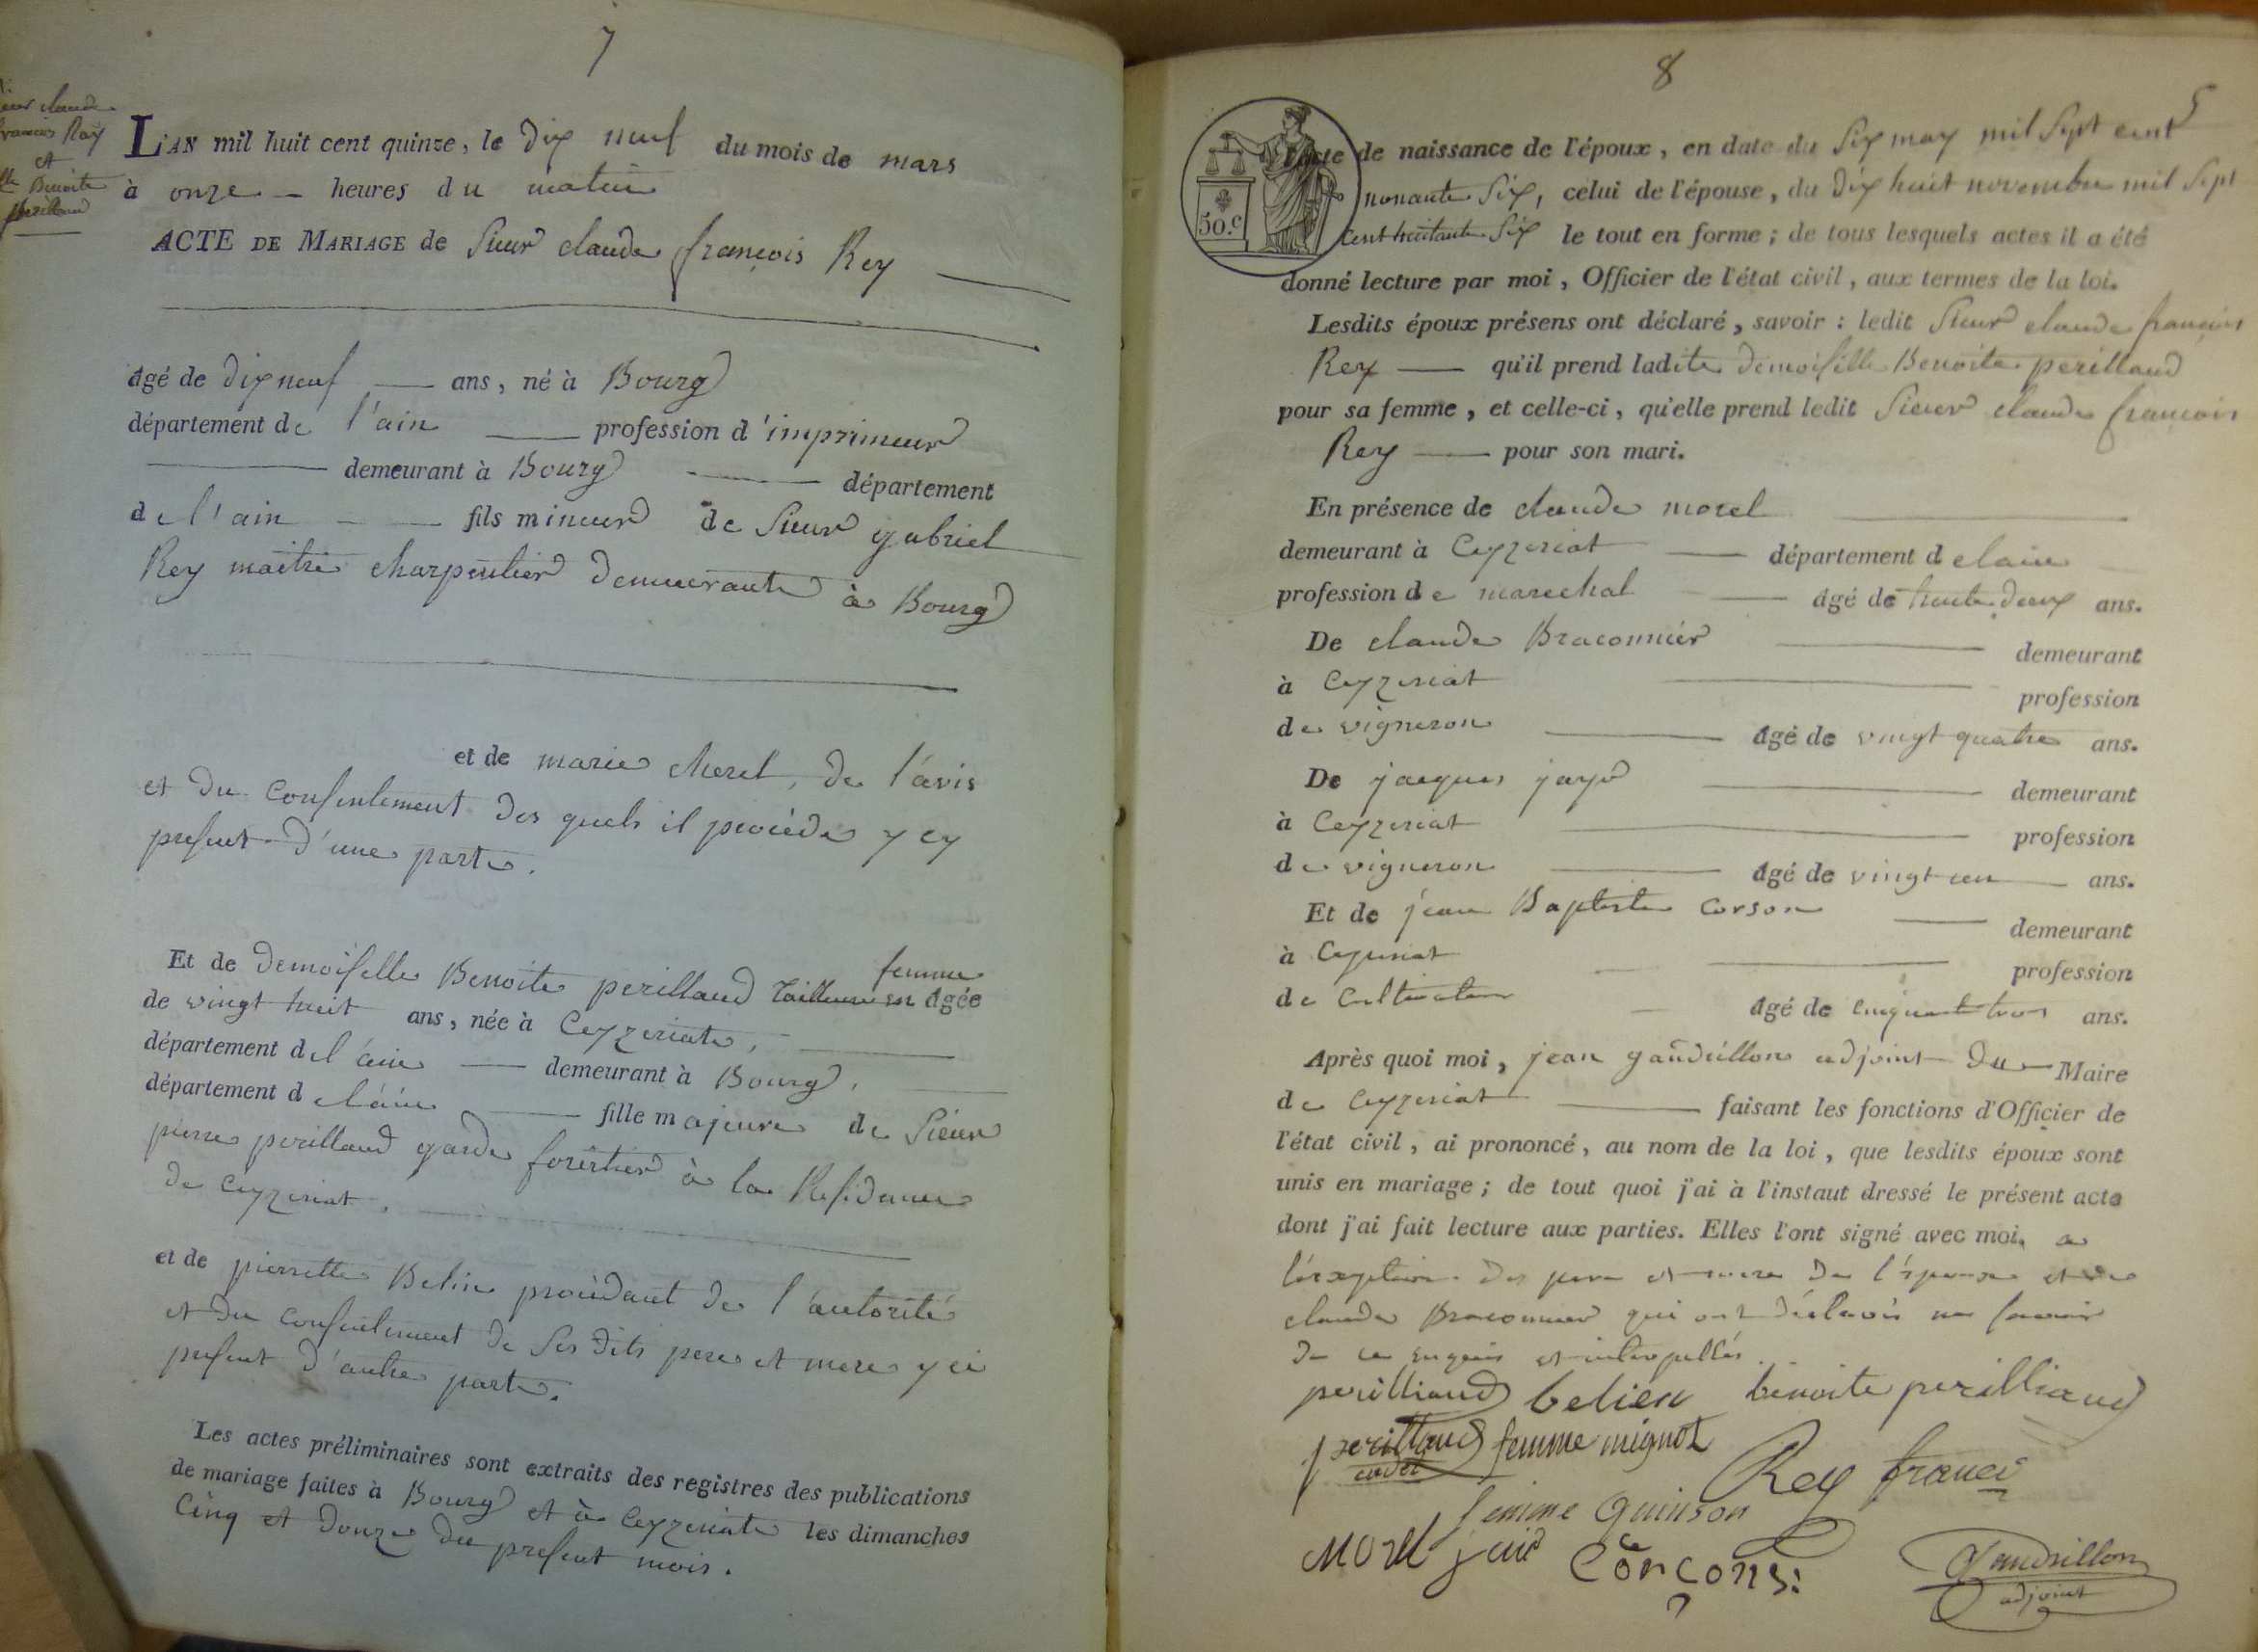 7
sieur claude
françois Rey
et
lle Benoite
perillaud
L'AN mil huit cent quinze, le dix neuf du mois de mars
à onze heures du matin
ACTE DE MARIAGE de Sieur claude françois Rey
âgé de dix neuf ans, né à Bourg
département de l'ain profession d'imprimeur
demeurant à Bourg département
de l'ain fils mineur de Sieur gabriel
Rey maitre charpentier demeurante à Bourg
et de marie cherel, de l'avis
et du consentement des quels il procède y cy
present d'une parte.
Et de demoiselle Benoite perillaud tailleuse en femme âgée
de vingt huit ans, née à Ceyzeriate,
département de l'ain demeurant à Bourg,
département de l'ain fille majeure de Sieur
pierre perillaud garde forestier à la Residence
de ceyzeriat.
et de pierrette Belin procèdant de l'autorité
et du consentement de ses dits pere et mere y ci
present d'autre parte.
Les actes préliminaires sont extraits des registres des publications
de mariage faites à Bourg et à Ceyzeriate les dimanches
Cinq et douze du present mois.
8
5
50.c
l'acte de naissance de l'époux, en date du Six may mil Sept cent
nonante Six, celui de l'épouse, du dix huit novembre mil Sept
Cent huitante Six le tout en forme; de tous lesquels actes il a été
donné lecture par moi, Officier de l'état civil, aux termes de la loi.
Lesdits époux présens ont déclaré, savoir : ledit Sieur claude françois
Rey qu'il prend ladite demoiselle Benoite perillaud
pour sa femme, et celle-ci, qu'elle prend ledit Sieur claude françois
Rey pour son mari.
En présence de claude morel
demeurant à Ceyzeriat département de lain
profession de marechal âgé de trente deux ans.
De claude Braconnier demeurant
à Ceyzeriat profession
de vigneron âgé de vingt quatre ans.
De jacques jayr demeurant
à Ceyzeriat profession
de vigneron âgé de vingt un ans.
Et de jean Baptiste corson demeurant
à Ceyzeriat profession
de cultivateur âgé de cinquante trois ans.
Après quoi moi, jean gaudrillon adjoint du Maire
de Ceyzeriat faisant les fonctions d'Officier de
l'état civil, ai prononcé, au nom de la loi, que lesdits époux sont
unis en mariage; de tout quoi j'ai à l'instaut dressé le présent acte
dont j'ai fait lecture aux parties. Elles l'ont signé avec moi. a
l'exeption des pere et mere de l'epouse et de
claude Braconnier qui ont déclarés ne savoir
de ce enquis et interpellés
perilliaud belien benoite perilliaud
perillaud cadet femme mignot
Rey franci
femme Guinson
Morel jaid Corçons:
Gaudrillon
adjoint